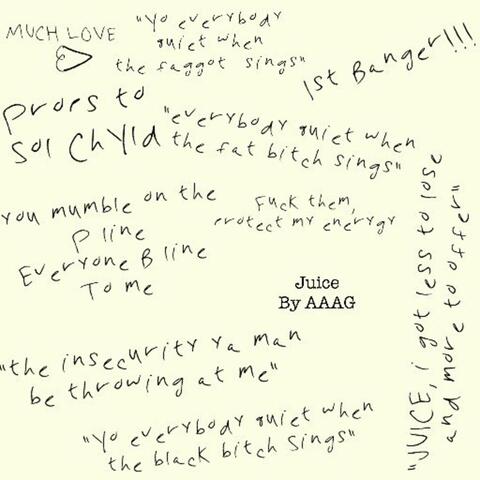 MUCH LOVE
"Yo everybody
quiet when
the faggot sings"
1st Banger!!!
Proes to
Sol Chyld
"everybody quiet when
the fat bitch sings"
you mumble on the
P line
Everyone B line
To me
Fuck them,
protect my enerygy
"JUICE, i got less to lose
and more to offer"
Juice
By AAAG
"the insecurity ya man
be throwing at me"
"Yo everybody quiet when
the black bitch sings"